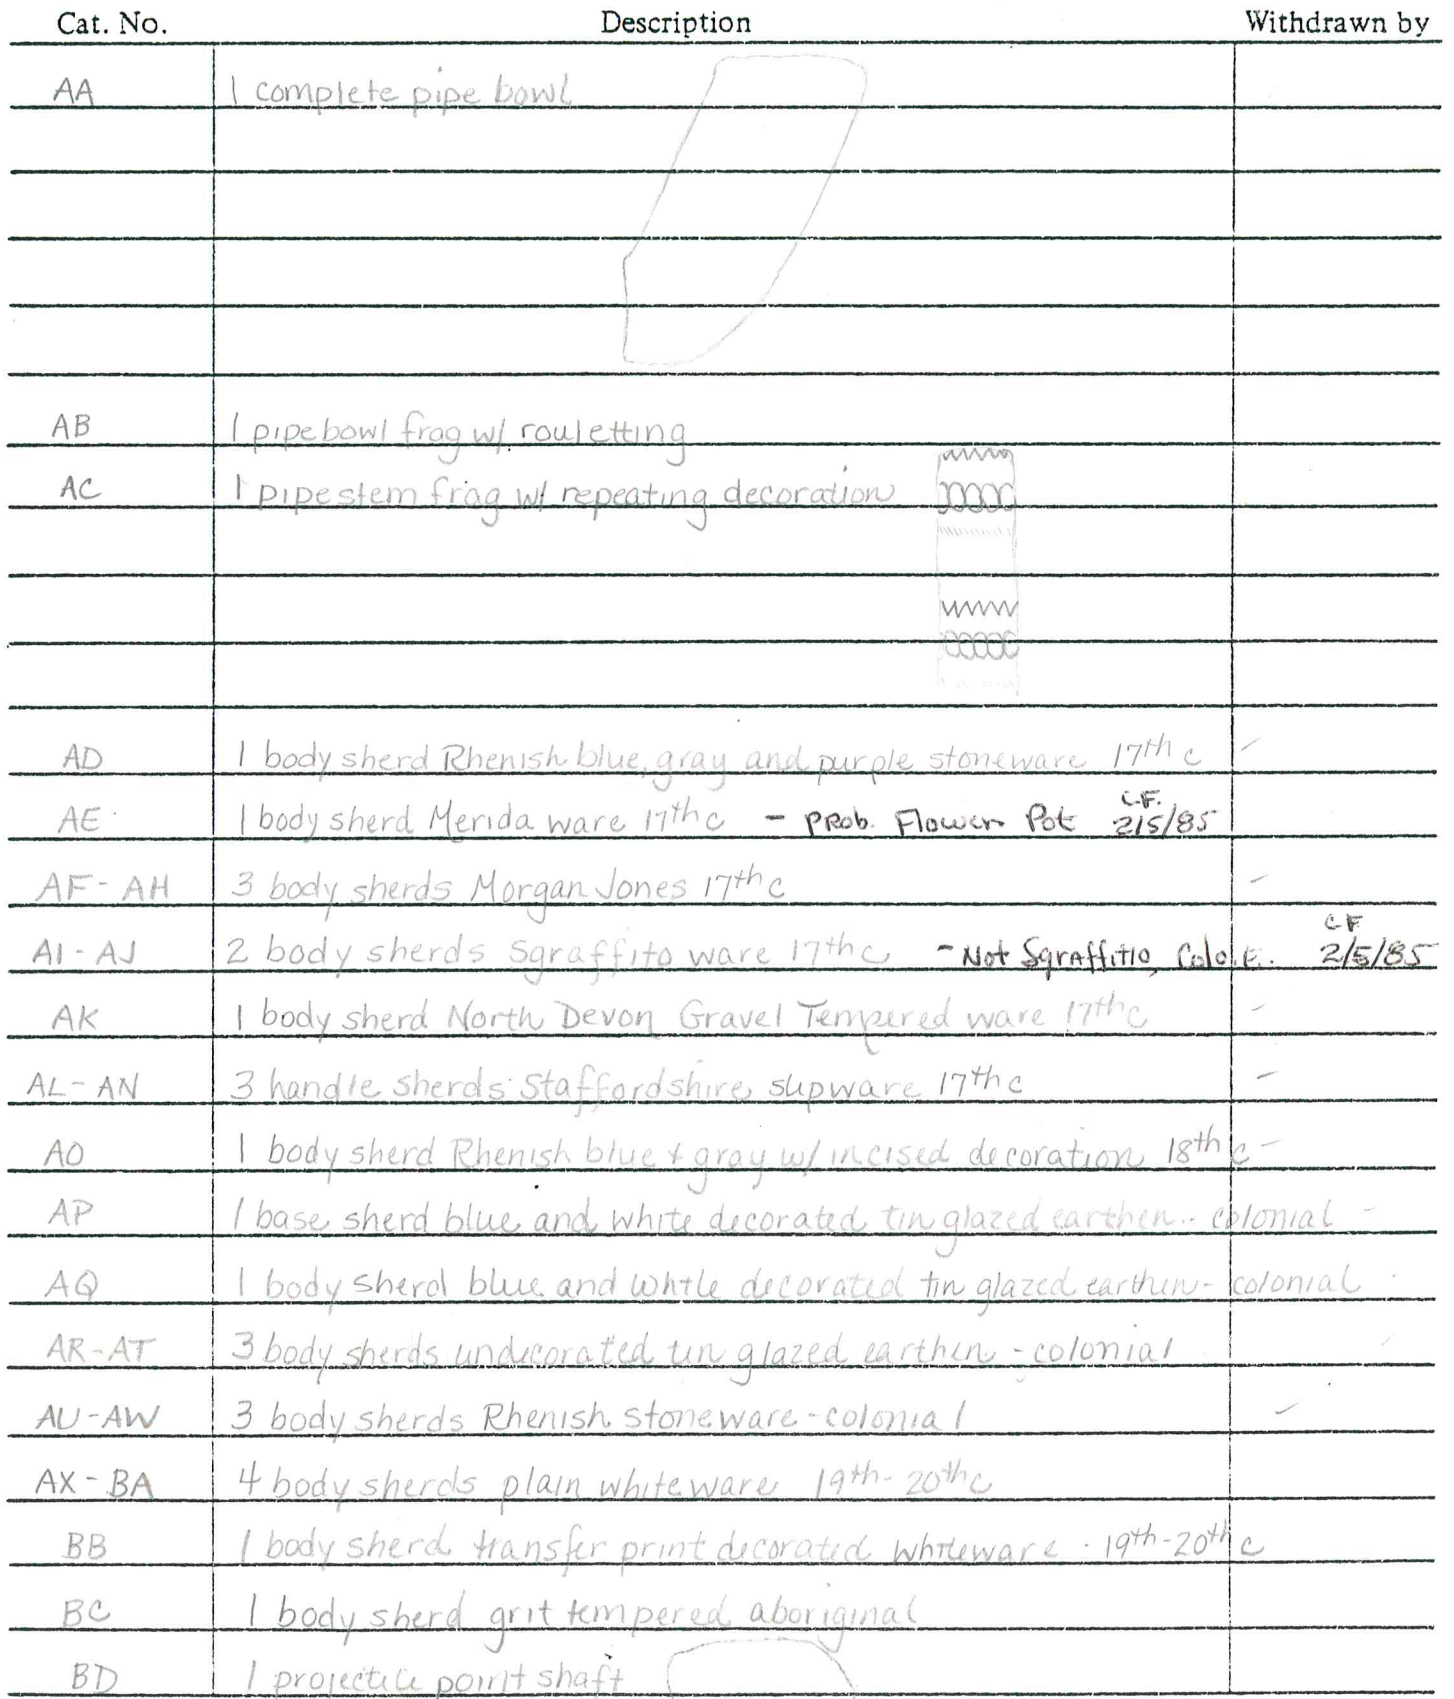 Cat. No. Description Withdrawn by
AA 1 complete pipe bowl
AB 1 pipe bowl frag w/ rouletting
AC 1 pipe stem frag w/ repeating decoration
AD 1 body sherd Rhenish blue, gray and purple stoneware 17th c
C.F.
AE 1 body sherd Merida ware 17th c - Prob. Flower Pot 2/5/85
AF-AH 3 body sherds Morgan Jones 17th c
C.F.
AI-AJ 2 body sherds Sgraffito ware 17th c - Not Sgraffitio, Colo. E. 2/5/85
AK 1 body sherd North Devon Gravel Tempered ware 17th c
AL-AN 3 handle sherds Staffordshire slipware 17th c
AO 1 body sherd Rhenish blue + gray w/ incised decoration 18th c
AP 1 base sherd blue and white decorated tin glazed earthen - colonial
AQ 1 body sherd blue and white decorated tin glazed earthen - colonial
AR-AT 3 body sherds undecorated tin glazed earthen - colonial
AU-AW 3 body sherds Rhenish stoneware - colonial
AX-BA 4 body sherds plain whiteware 19th-20th c
BB 1 body sherd transfer print decorated whiteware 19th-20th c
BC 1 body sherd grit tempered aboriginal
BD 1 projectile point shaft